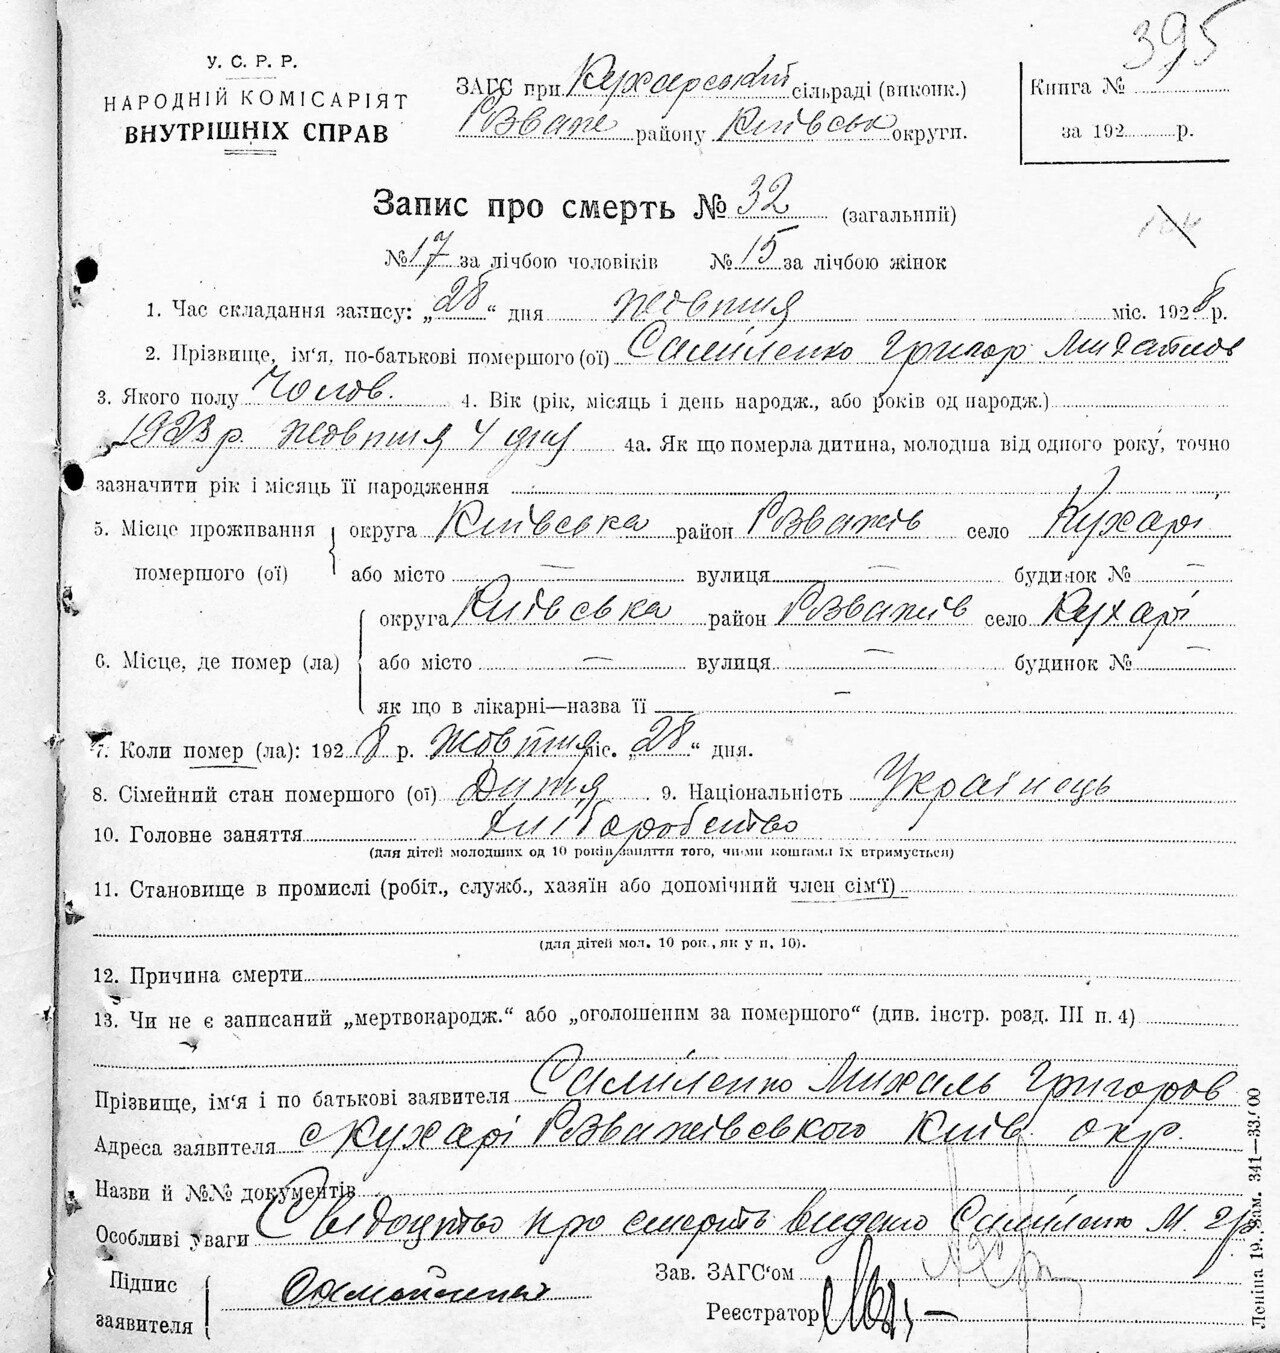 395
У. С. Р. Р.
НАРОДНІЙ КОМІСАРІЯТ
ВНУТРІШНІХ СПРАВ
ЗАГС при Кухарський сільраді (виконк.)
Розваж району Київськ округи.
Книга №
за 192 р.
Запис про смерть № 32 (загальний)
№ 17 за лічбою чоловіків № 15 за лічбою жінок
1. Час складання запису: „28“ дня жовтня міс. 1928 р.
2. Прізвище, ім'я, по-батькові помершого (ої) Самійленко Григор Михайлов
3. Якого полу Чолов. 4. Вік (рік, місяць і день народж., або років од народж.)
1923 р. жовтня 4 дня 4а. Як що померла дитина, молодша від одного року, точно
зазначити рік і місяць її народження –
5. Місце проживання помершого (ої) округа Київська район Розважів село Кухарі
або місто — вулиця — будинок № —
6. Місце, де помер (ла) округа Київська район Розважів село Кухарі
або місто — вулиця — будинок № —
як що в лікарні—назва її —
7. Коли помер (ла): 1928 р. жовтня міс. „28“ дня.
8. Сімейний стан помершого (ої) Дитя 9. Національність Українець
10. Головне заняття хліборобство
(для дітей молодших од 10 років заняття того, чиїми коштами їх втримується)
11. Становище в промислі (робіт., служб., хазяїн або допомічний член сім'ї)
(для дітей мол. 10 рок., як у п. 10).
12. Причина смерти
13. Чи не є записаний „мертвонародж.“ або „оголошеним за помершого“ (див. інстр. розд. III п. 4)
Прізвище, ім'я і по батькові заявителя Самійленко Михаль Григоров
Адреса заявителя с Кухарі Розважівського Київ. окр.
Назви й №№ документів
Особливі уваги Свідоцтво про смерть видано Самійленко М. Гр
Підпис заявителя
Зав. ЗАГС'ом
Реєстратор
Леніна 19. Зам. 341—33.